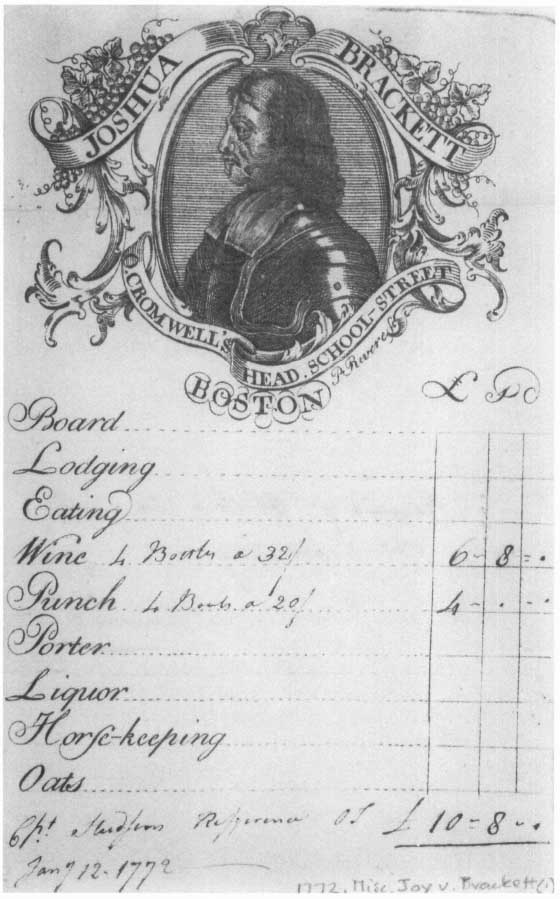 JOSHUA BRACKETT
O. CROMWELL'S HEAD. SCHOOL-STREET
P Revere Sc
BOSTON
£ s d
Board
Lodging
Eating
Wine 4 Bottles a 32/ 6 - 8 = .
Punch 4 a 20/ 4 - . - .
Porter
Liquor
Horſe-keeping
Oats
OT £ 10 = 8 - .
Jany 12. 1772
1772. Misc. Joy v. Brackett (1)